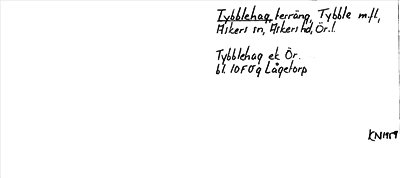 Tybblehag, terräng, Tybble m.fl,
Askers sn, Askers hd, Ör. l.
Tybblehag ek Ör.
bl. 10F0g Lågetorp
KN1959